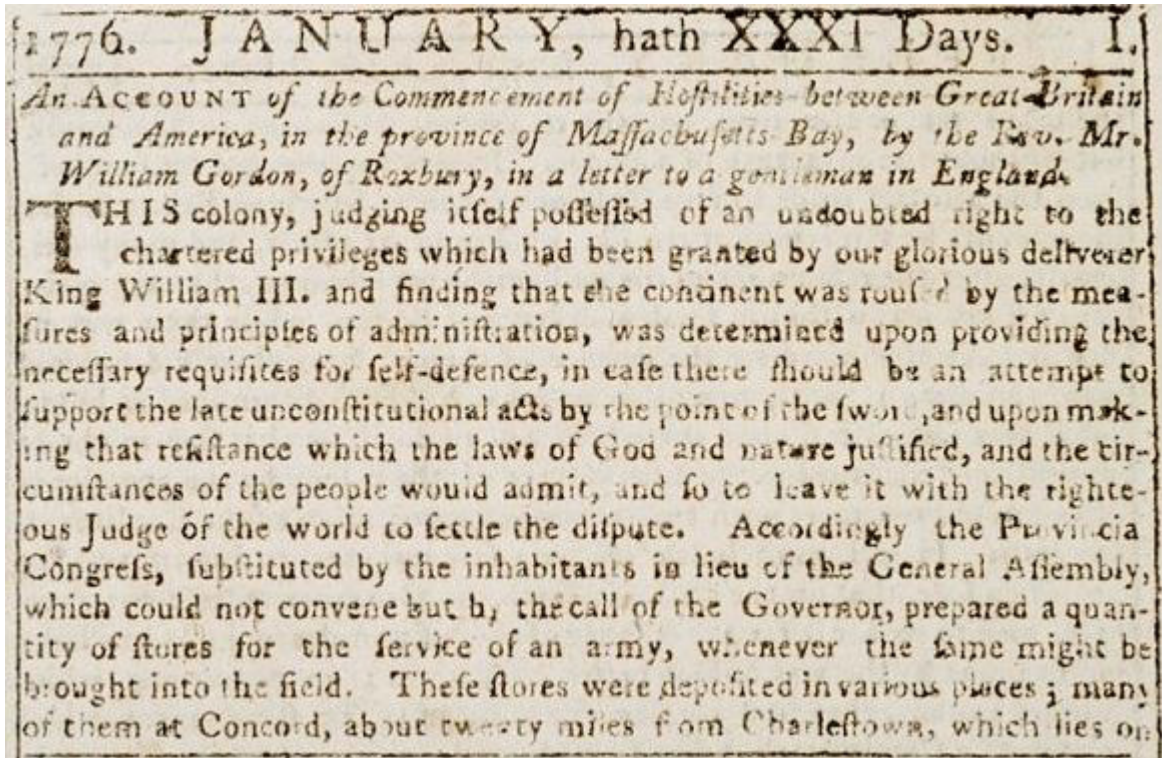 1776. JANUARY, hath XXXI Days. I.
An ACCOUNT of the Commencement of Hoſtilities between Great-Britain
and America, in the province of Maſſachuſetts-Bay, by the Rev. Mr.
William Gordon, of Roxbury, in a letter to a gentleman in England.
THIS colony, judging itſelf poſſeſſed of an undoubted right to the
chartered privileges which had been granted by our glorious deliverer
King William III. and finding that the continent was rouſed by the mea-
ſures and principles of adminiſtration, was determined upon providing the
neceſſary requiſites for ſelf-defence, in caſe there ſhould be an attempt to
ſupport the late unconſtitutional acts by the point of the ſword, and upon mak-
ing that reſiſtance which the laws of God and nature juſtified, and the cir-
cumſtances of the people would admit, and ſo to leave it with the righte-
ous Judge of the world to ſettle the diſpute. Accordingly the Provincia
Congreſs, ſubſtituted by the inhabitants in lieu of the General Aſſembly,
which could not convene but by the call of the Governor, prepared a quan-
tity of ſtores for the ſervice of an army, whenever the ſame might be
brought into the field. Theſe ſtores were depoſited in various places; many
of them at Concord, about twenty miles from Charleſtown, which lies on